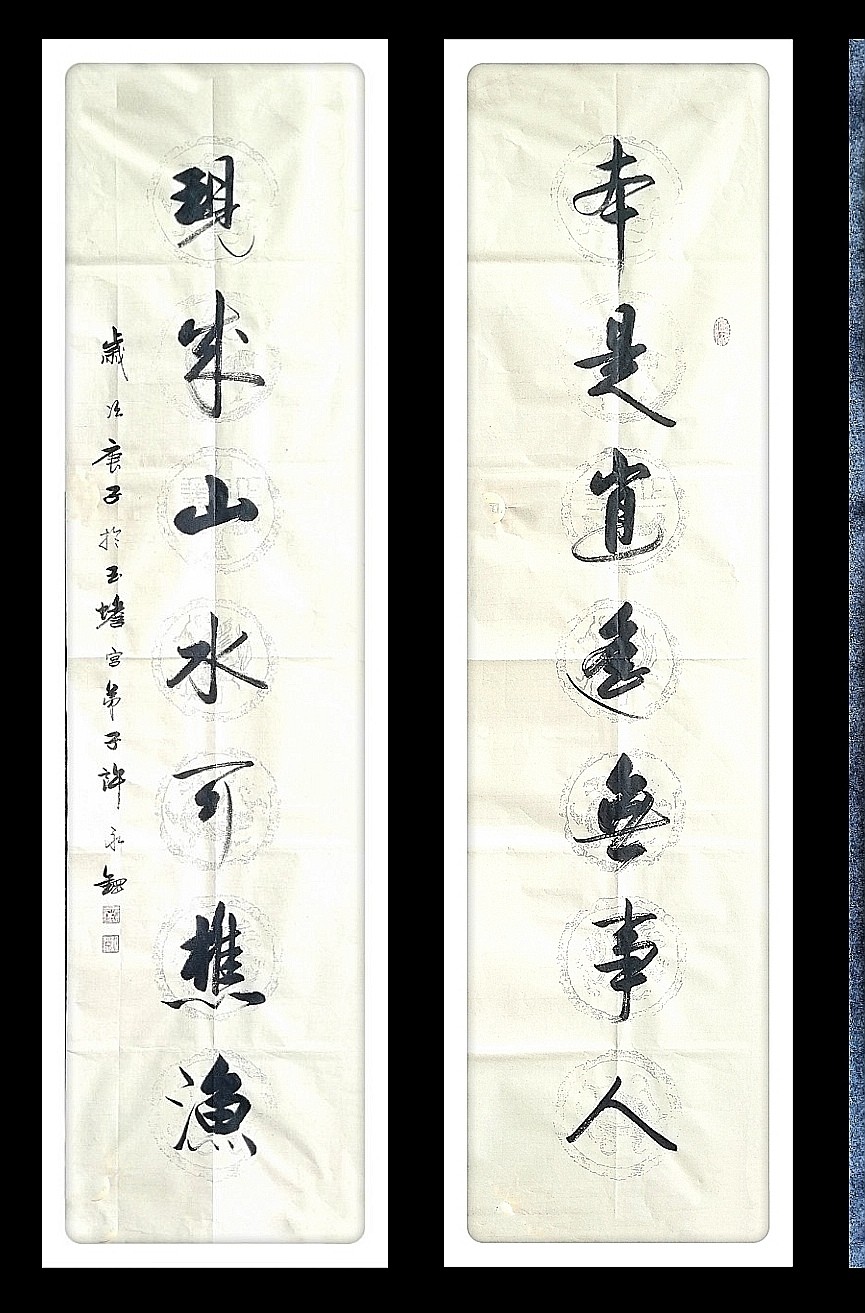 本是逍遙無事人
現成山水可樵漁
歲次庚子於玉蟾宮弟子許永鋼